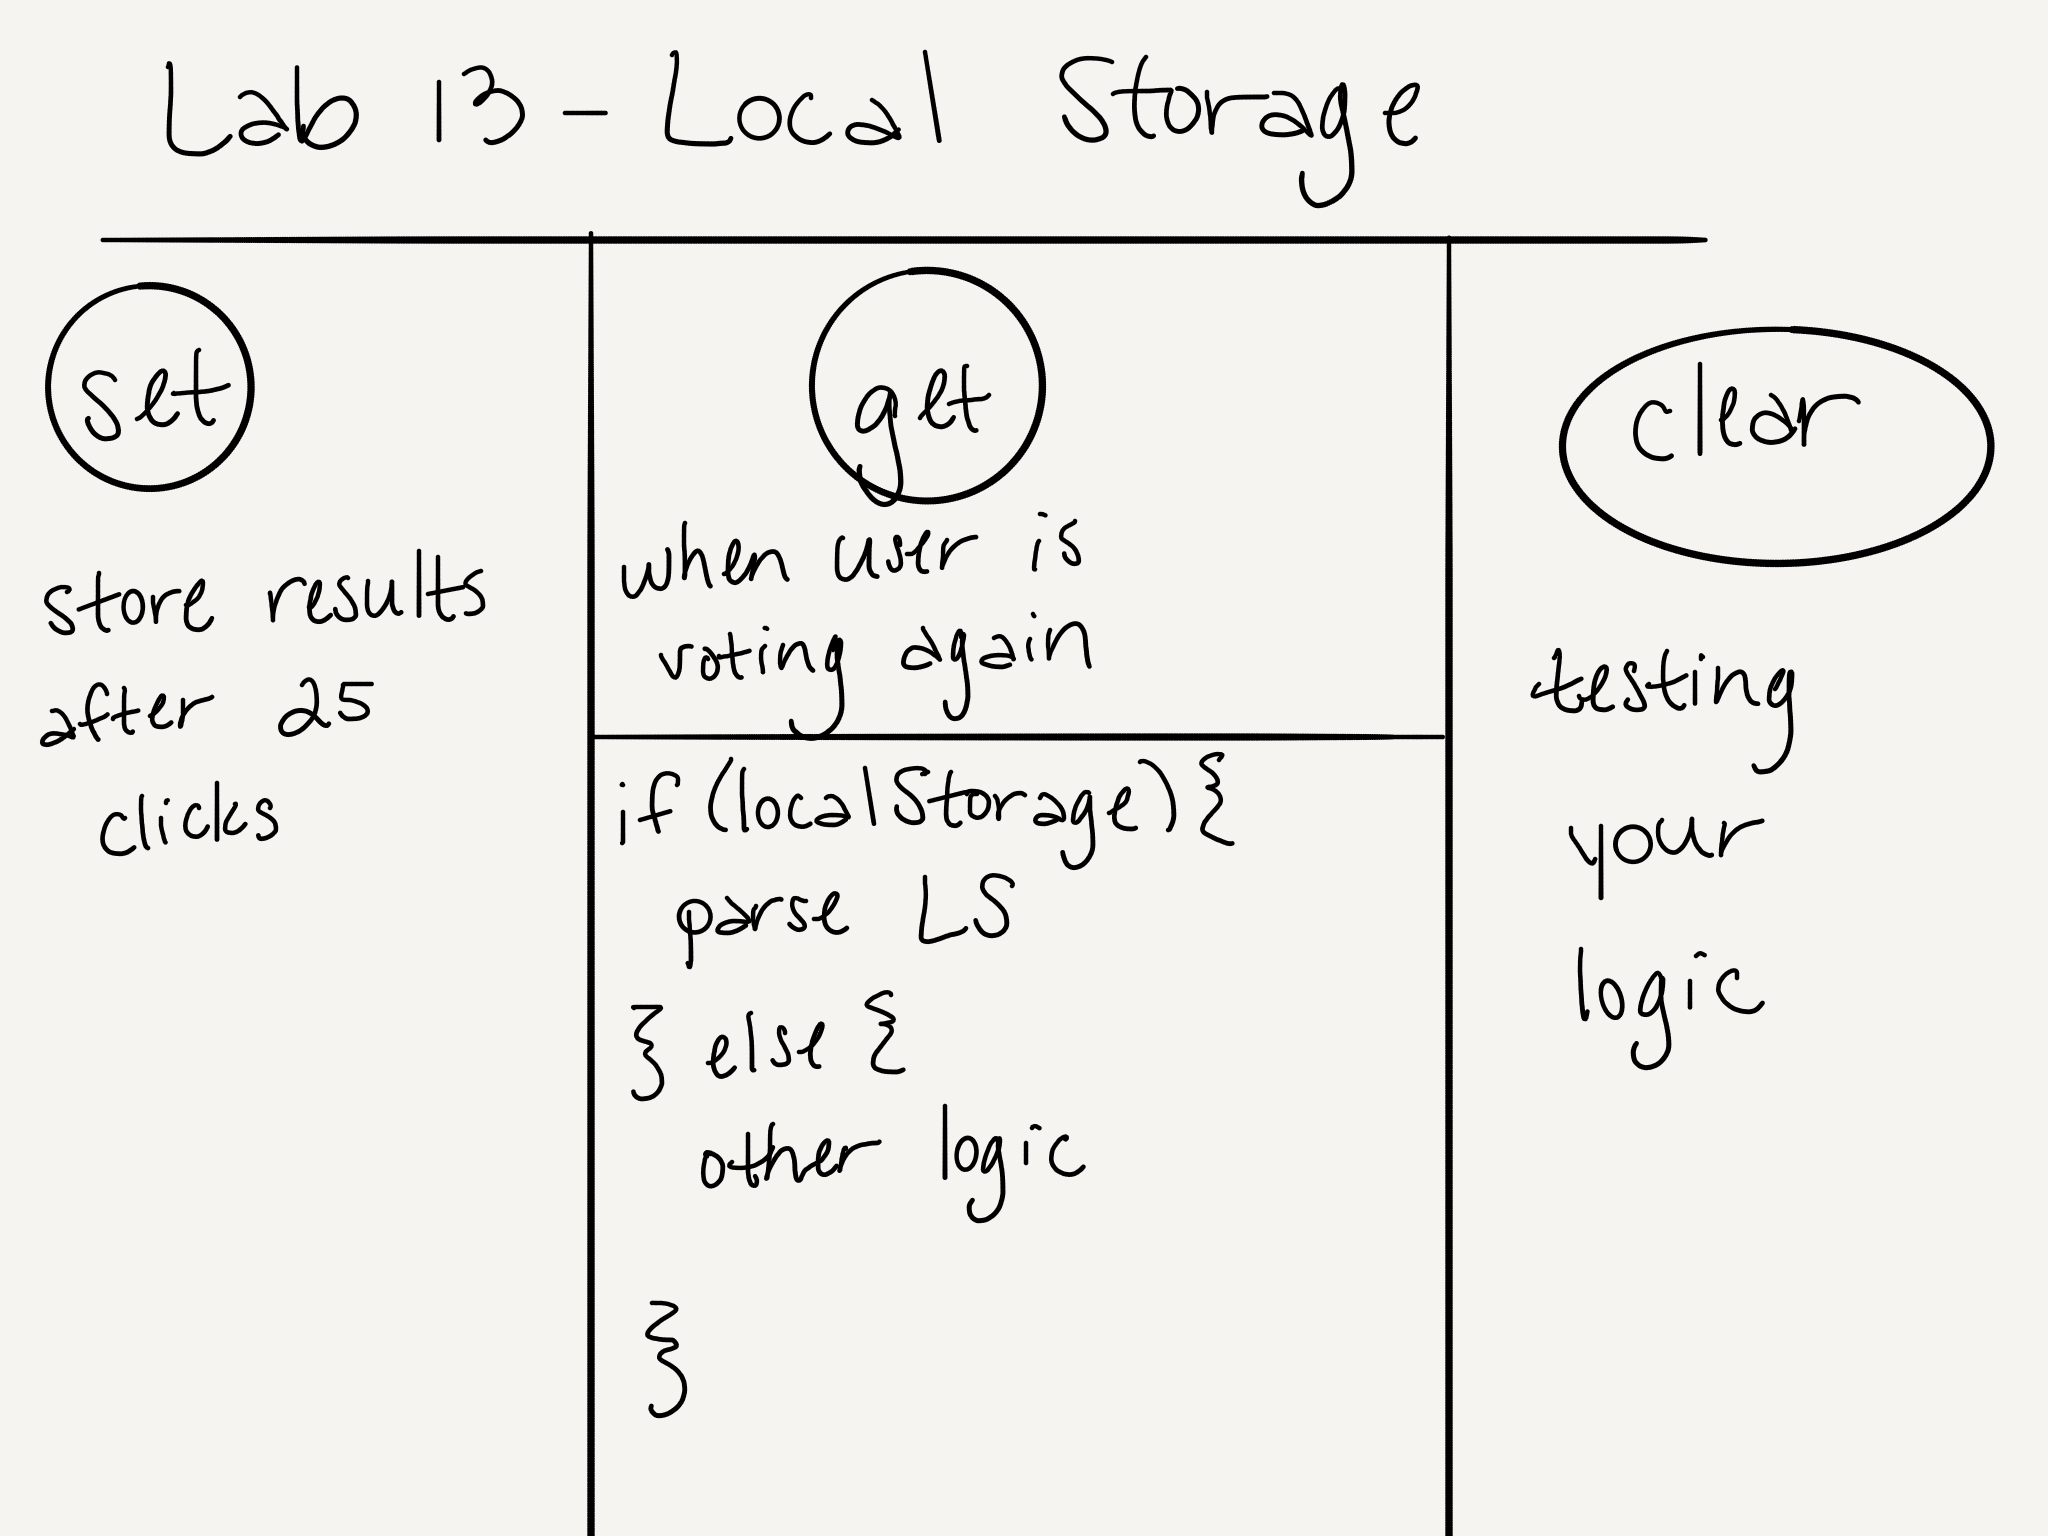 Lab 13 - Local Storage
set
store results
after 25
clicks
get
when user is
voting again
if (localStorage) {
parse LS
} else {
other logic
}
clear
testing
your
logic